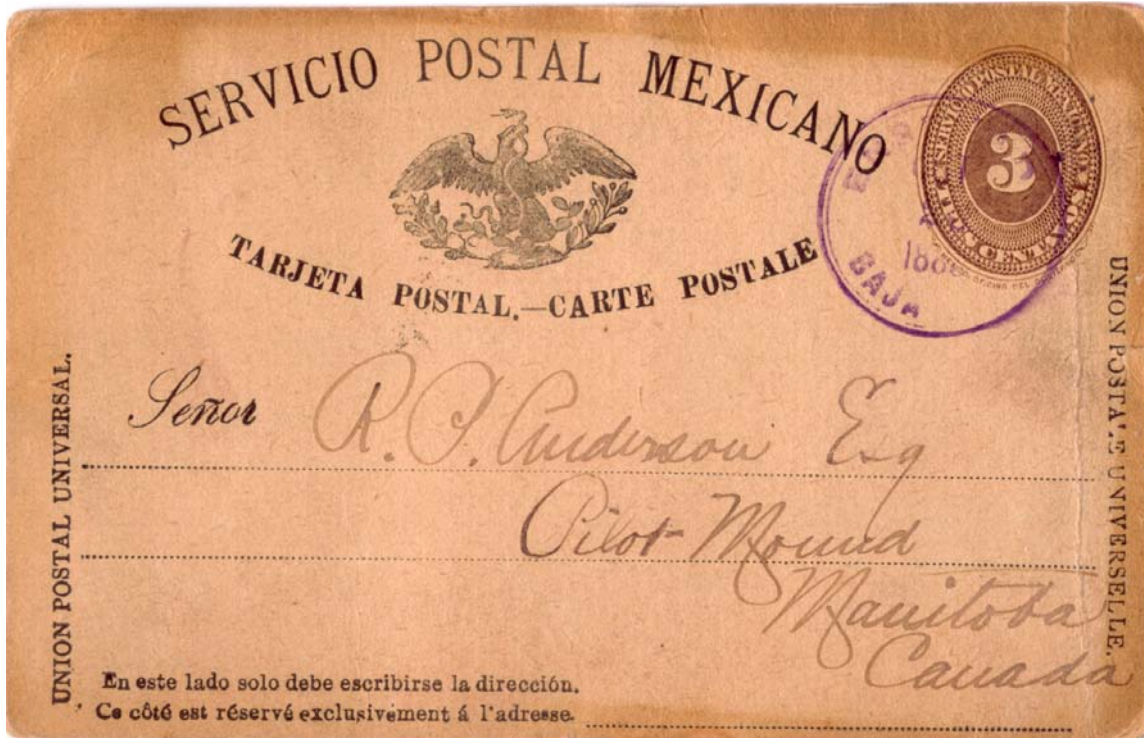 SERVICIO POSTAL MEXICANO
TARJETA POSTAL.—CARTE POSTALE
SERVICIO POSTAL MEXICANO
3
TRES CENTAVOS
BAJA
UNION POSTAL UNIVERSAL.
UNION POSTALE UNIVERSELLE.
Señor R. P. Anderson Esq
Pilot Mound
Manitoba
Canada
En este lado solo debe escribirse la dirección.
Ce côté est réservé exclusivement á l'adresse.